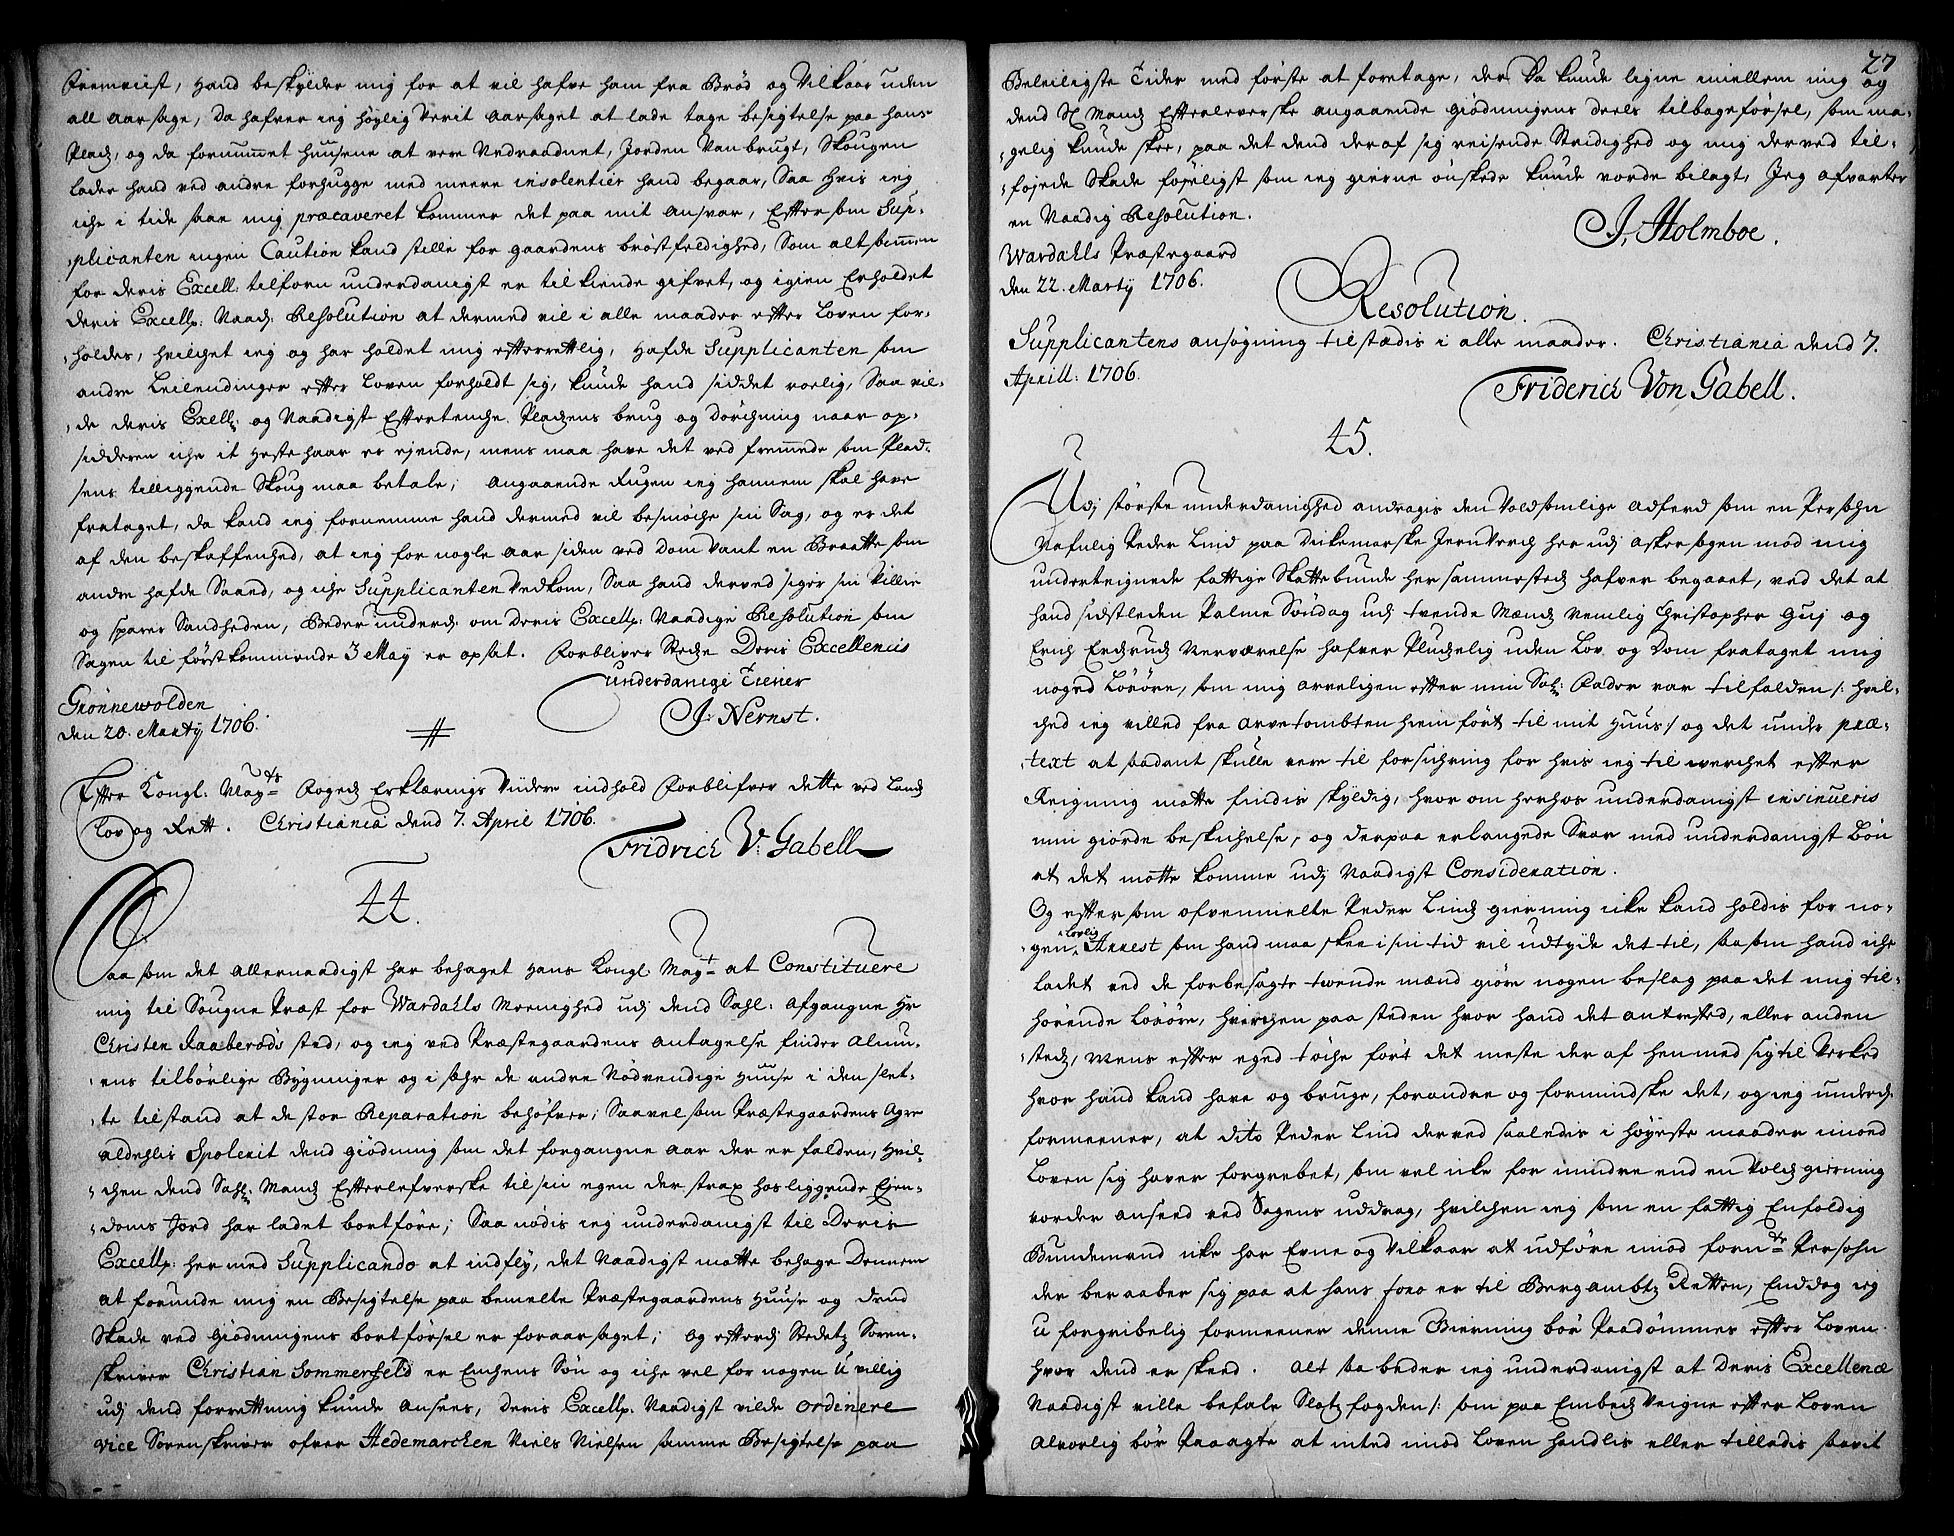 Fremviist, hand beskylder mig for at vil hafve ham fra Brød og Vilkaar uden
all aarsage, da hafver ieg høylig verit aarsaget at lade tage besigtelse paa hans
Plads, og da fornummet Huusene at vere Nedraadnet, Jorden Vanbrugt, Skougen
lader hand ved andre forhugge med meere insolentier hand begaar, Saa hvis ieg
iche i tide faar mig præcaveret kommer det paa mit ansvar, Eftersom Sup-
plicanten ingen Caution kand stille for gaardens brøstfeldighed, Som altsammen
for deris Excell: tilforn underdanigst er tilkiende gifvet, og igien Erholdet
deris Excellz: Naad: Resolution at dermed vil i alle maader efter Loven for-
holdes, hvilchet ieg og har holdet mig efterrettlig, hafde Supplicanten som
andre Leilendinger efter Loven forholdt sig, kunde hand siddet roelig, Saa vil-
de deris Exellz: og Naadigst Eftertenche Pladsens brug og dørchning naar op-
sidderen iche it Hestehaar er ejende, mens maa have det ved fremmede som Plad-
sens tilliggende Skoug maa betale; angaaende Rugen ieg hannem skal have
frataget, da kand ieg fornemme hand dermed vil besmøche sin Sag, og er det
af den beskaffenhed, at ieg for nogle aar siden ved Dom vant en Braatte som
andre hafde Saaed, og iche Supplicanten Vedkom, Saa hand derved siger sin Villie
og sparer Sandheden, Beder underd: om Deris Excellz: Naadige Resolution som
Sagen til førstkommende 3 May er opsat. Forbliver Stedse Deris Excellencis
underdanige Tiener
Grønnewolden
den 20. Marty 1706.
J: Nernst.
Efter Kongl: Mayts Fogeds Erklærings Viidere indhold Forblifver dette ved Lands
Lov og Rett. Christiania dend 7. April 1706.
Fridrich V: Gabell
44.
Saasom det allernaadigst har behaget Hans Kongl Mayt at Constituere
mig til Sougne Præst for Wardahls Meenighed udj dend Sahl: afgangne Hr
Christen Raaberøds sted, og ieg ved Præstegaardens antagelse finder Almu-
ens tilbørlige Bygninger og i sær de andre Nødvendige Huuse i den slet-
te tilstand at de stor Reparation behøfver; Saavelsom Præstegaardens Agre
aldehlis Spolerit dend giødning som det forgangne aar der er falden, Hvil-
chen dend Sahl: Mands Efterlefverske til sin egen der strax hosliggende Ejen-
doms Jord har ladet bortføre; Saa nødis ieg underdanigst til Deris
Excellz: hermed Supplicando at indfly, det Naadigst motte behage Dennem
at forunde mig en Besigtelse paa bemelte Præstegaardens Huuse og dend
Skade ved Giødningens bortførsel er foraarsaget; og efterdj Stedetz Soren-
skriver Christian Sommerfeld er Enchens Søn og iche vel for nogen U villig
udj dend forrettning kunde ansees, deris Excellz: Naadigst vilde ordinere
vice Sorenskriver ofver Hedemarchen Niels Nielsen samme Besigtelse paa
27
Beleiligste Tider med første at foretage, der da kunde ligne imellem mig og
dend Sl Mands Efterleverske angaaende Giødningens deels tilbageførsel, som ma-
gelig kunde skee, paa det dend deraf sig reisende Stridighed og mig derved til-
føjede Skade føjeligst som ieg gierne ønskede kunde vorde bilagt, Jeg afvarter
en Naadig Resolution.
Wardahls Præstegaard
den 22. Marty 1706.
J. Holmboe.
Resolution.
Supplicantens ansøgning tilstædis i alle maader. Christiania dend 7.
Aprill: 1706.
Friderich Von Gabell.
45.
Udj største underdanighed andragis den Voldsomlige adferd som en Persohn
Nafnlig Peder Lind paa Dikemarske Jern Verch her udj asker sogen mod mig
underteignede fattige Skattebunde her sammesteds hafver begaaet, ved det at
hand sidstleden Palme Søndag udj tvende Mænds Nemlig Christopher Guj og
Erich Erdsruds Nerværelse hafver Pludselig uden Lov og Dom frataget mig
noged Løsøre, som mig arveligen efter min Sal: Fader var tilfalden /: hvil-
ched ieg villed fra arvetombten hiem ført til mit Huus :/ og det under præ-
text at saadant skulle vere til forsichring for hvis ieg til werchet efter
Reigning motte findis skyldig, hvorom herhos underdanigst insinueris
min giorde beskichelse, og derpaa erlangede Svar med underdanigst Bøn
at det motte komme udj Naadigst Consideration.
Og eftersom ofvenmelte Peder Linds gierning icke kand holdis for no-
gen lovlig Arrest som hand maa skee i sin tid vil udtyde det til, saasom hand iche
ladet ved de forbesagte tvende mænd giøre nogen beslag paa det mig til-
hørende Løsøre, hverchen paa steden hvor hand det antrefted, eller anden
steds, mens efter eged tøche ført det meste der af hen med sig til Verked
hvor hand kand have og bruge, forandre og formindske det, og ieg underd:
formeener, at dito Peder Lind derved saaledis i høyeste maader imod
Loven sig haver forgrebet, som vel icke for mindre end en Volds gierning
vorder anseed ved Sagens uddrag, hvilchen ieg som en fattig Enfoldig
Bundemand icke har Evne og Vilkaar at udføre imod fornde Persohn
der beraaber sig paa at hans foro er til Bergambtz Retten, Enddog ieg
uforgribelig formeener denne Gierning bør Paadømmes efter Loven
hvor dend er skeed. Alt saa beder ieg underdanigst at Deris Excellence
Naadigst ville befale Slotz fogden /: som paa Embeds Veigne efter Loven
alvorlig bør Paaagte at inted imod Loven handlis eller tilledis saavit